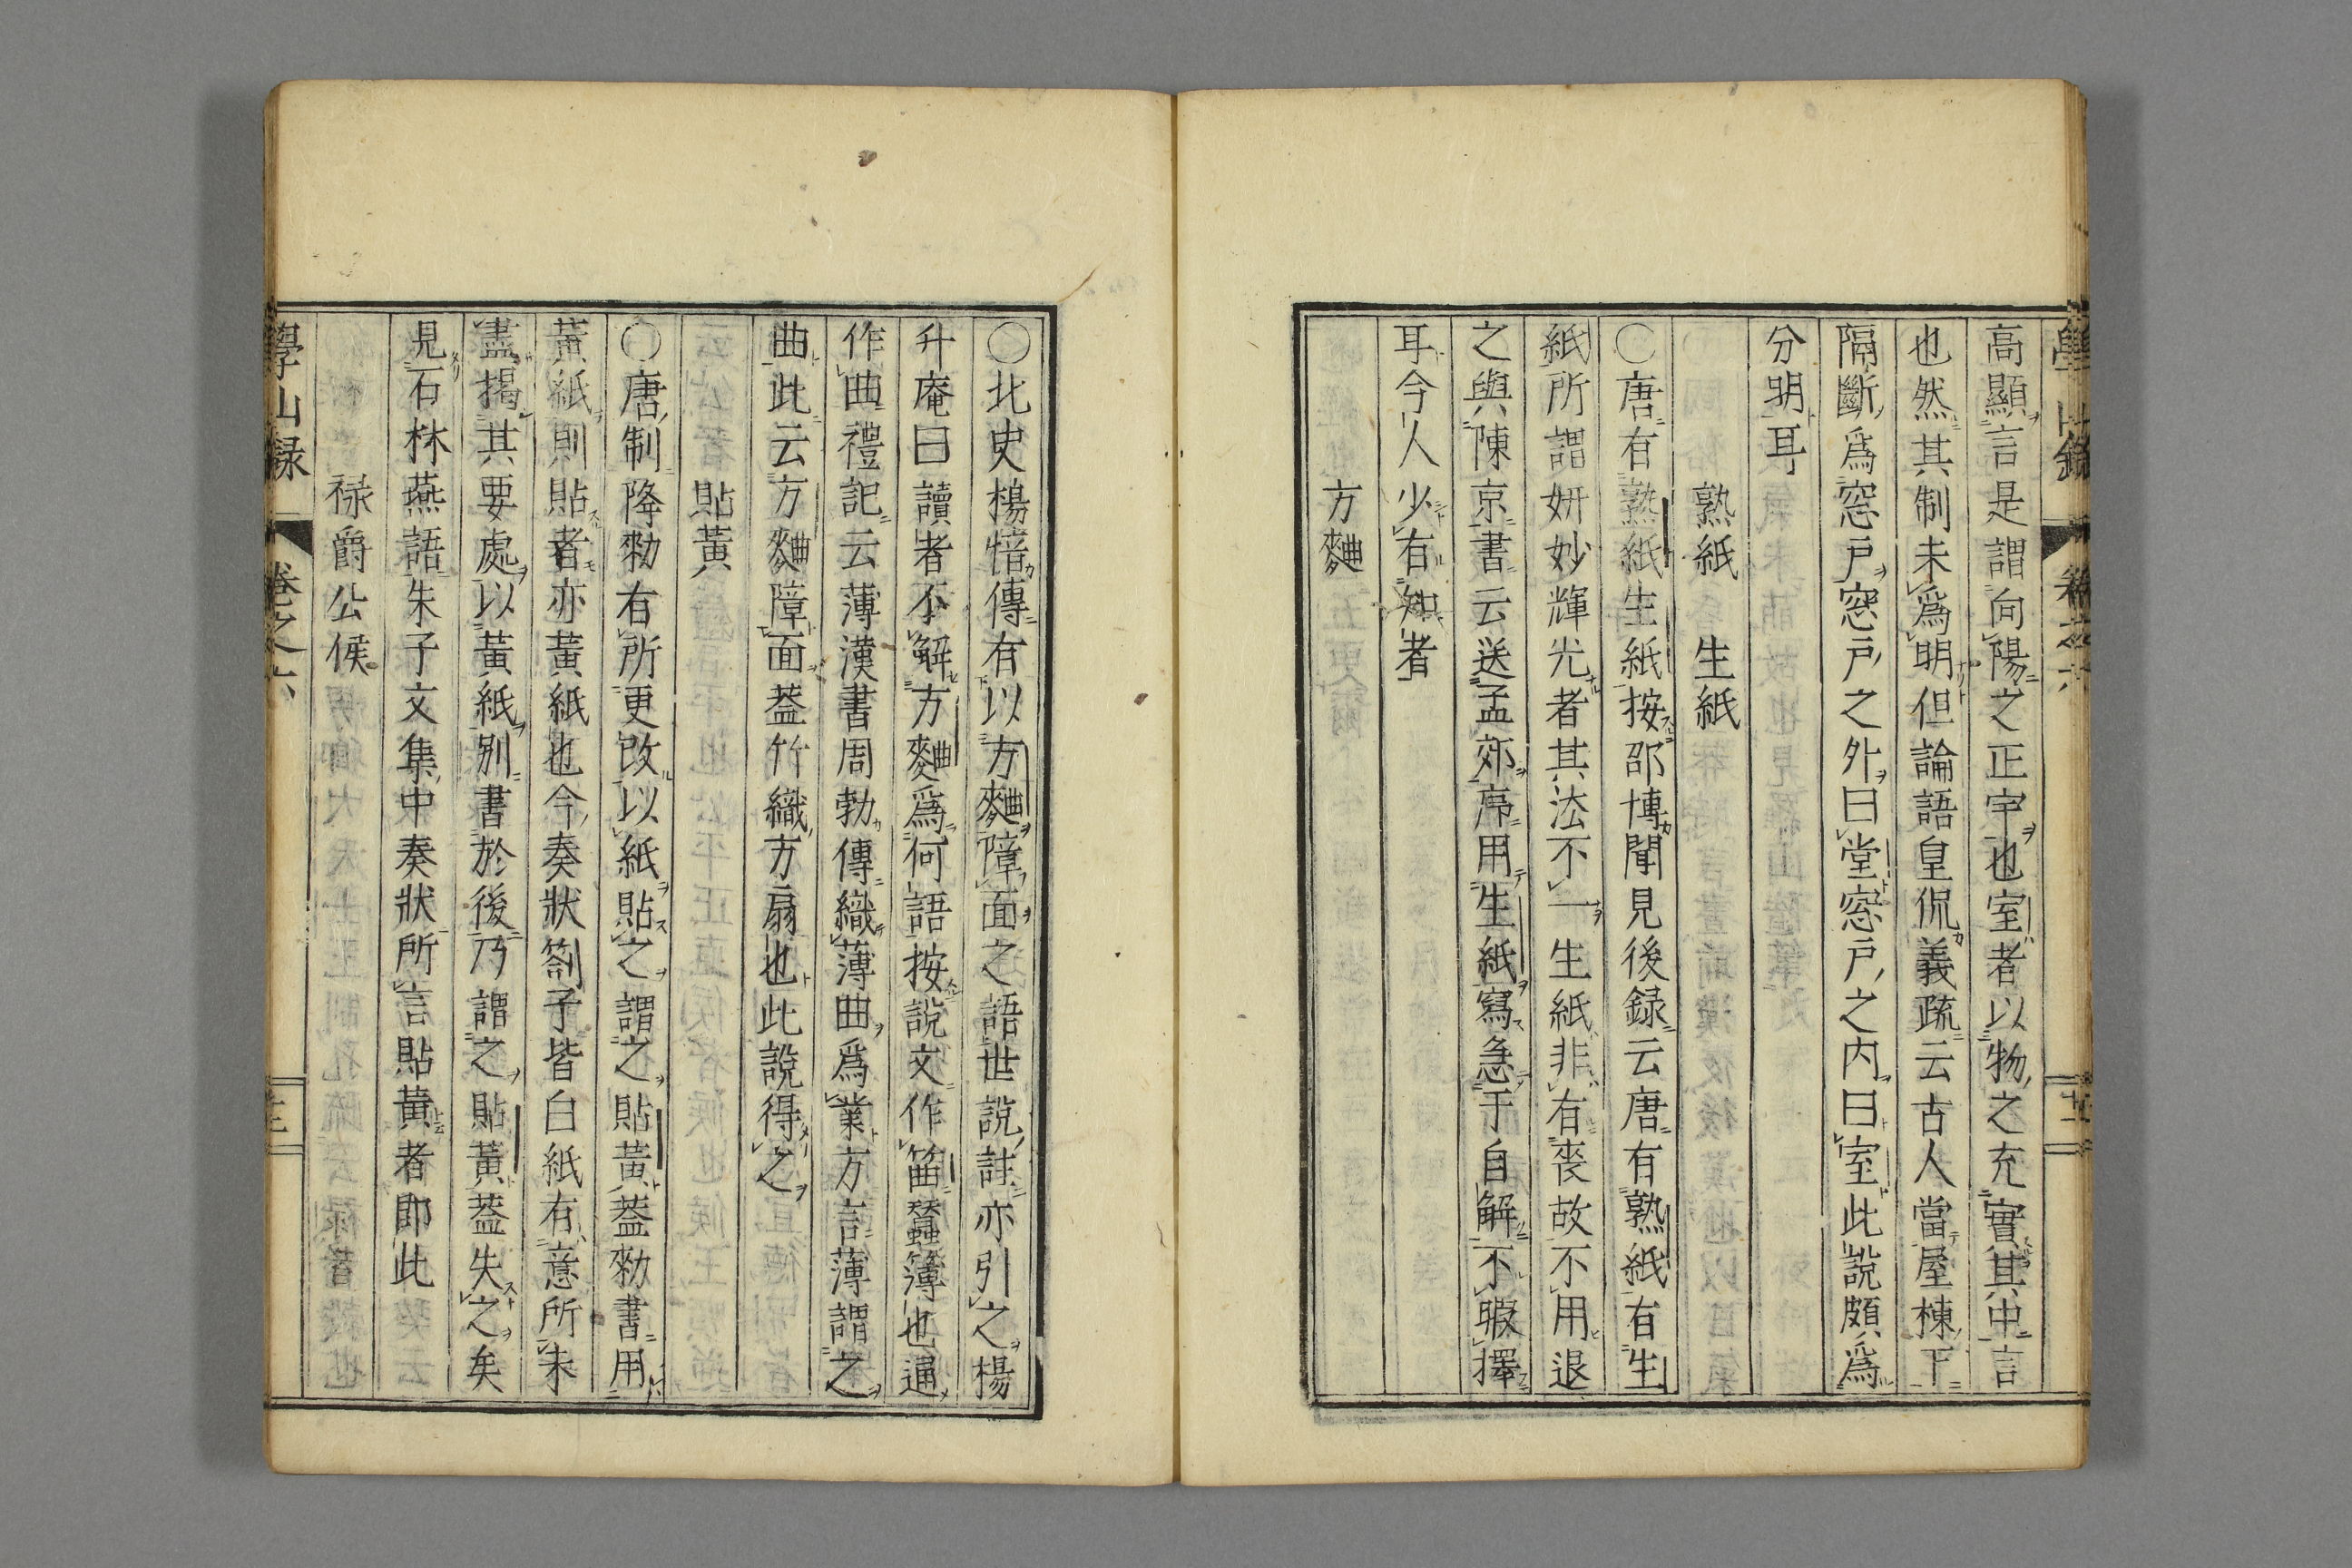 高顯言是謂向陽之正宇也室者以物之充實其中言
也然其制未爲明但論語皇侃義疏云古人當屋棟下
隔斷爲窓戸窓戸之外曰堂窓戸之内曰室此說頗爲
分明耳
熟紙 生紙
〇唐有熟紙生紙按邵博聞見後録云唐有熟紙有生
紙所謂妍妙輝光者其法不一生紙非有喪故不用退
之與陳京書云送孟郊序用生紙寫急于自解不暇擇
耳今人少有知者
方麯
〇北史楊愔傳有以方麯障面之語世說註亦引之楊
升庵曰讀者不解方麯爲何語按說文作𥬔蠶簿也通
作曲禮記云薄漢書周勃傳織薄曲爲業方言薄謂之
曲此云方麯障面蓋竹織方扇也此說得之
貼黄
〇唐制降勑有所更改以紙貼之謂之貼黄蓋勑書用
黄紙則貼者亦黄紙也今奏狀劄子皆白紙有意所未
盡揭其要處以黄紙别書於後乃謂之貼黄蓋失之矣
見石林燕語朱子文集中奏狀所言貼黄者即此
禄爵公侯
學山録 卷之六